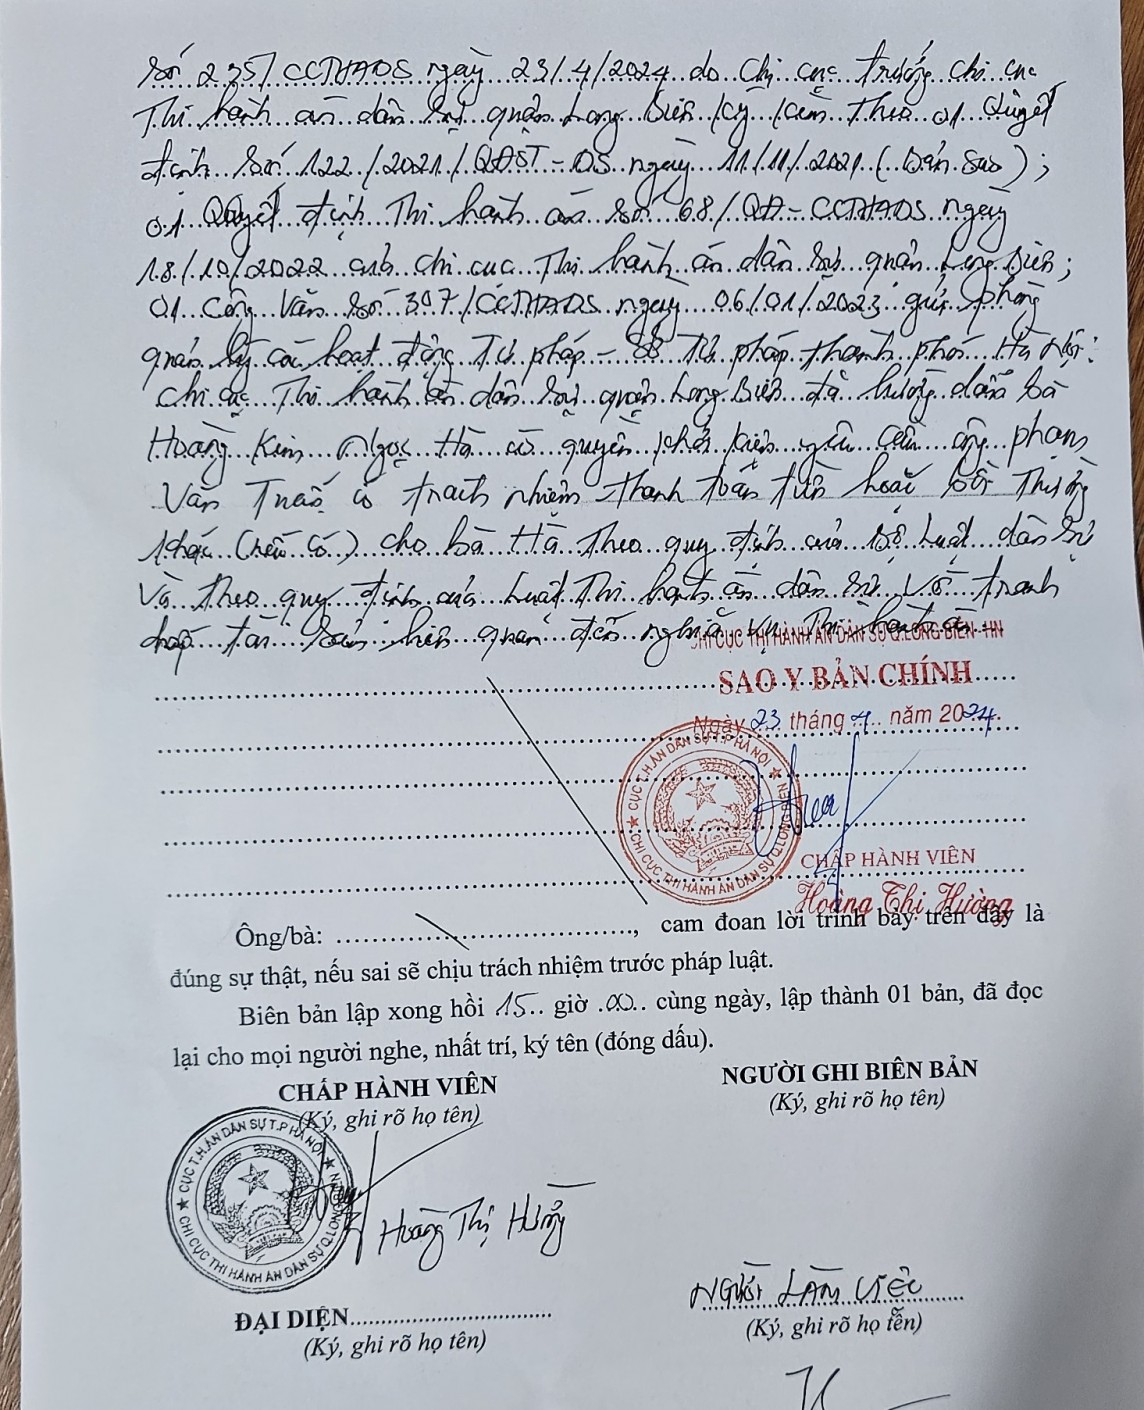 số 235/CCTHADS ngày 23/4/2024 do Chi cục trưởng chi cục
Thi hành án dân sự quận Long Biên ký kèm theo 01 Quyết
định số 122/2021/QĐST-DS ngày 11/11/2021 (bản sao);
01 Quyết định Thi hành án số 68/QĐ-CCTHADS ngày
18/10/2022 của chi cục Thi hành án dân sự quận Long Biên;
01 Công văn số 307/CCTHADS ngày 06/01/2023 gửi phòng
quản lý các hoạt động Tư pháp - Sở Tư pháp thành phố Hà Nội.
Chi cục Thi hành án dân sự quận Long Biên đã hướng dẫn bà
Hoàng Kim Ngọc Hà có quyền khởi kiện yêu cầu ông Phạm
Văn Tuấn có trách nhiệm thanh toán tiền hoặc bồi thường
khác (nếu có) cho bà Hà theo quy định của Bộ luật dân sự
Và theo quy định của Luật Thi hành án dân sự về tranh
chấp tài sản liên quan đến nghĩa vụ Thi hành án.
CHI CỤC THI HÀNH ÁN DÂN SỰ Q.LONG BIÊN-HN
SAO Y BẢN CHÍNH
Ngày 23 tháng 4 năm 2024
CỤC T.H.ÁN DÂN SỰ T.P HÀ NỘI
CHI CỤC THI HÀNH ÁN DÂN SỰ Q.LONG BIÊN
CHẤP HÀNH VIÊN
Hoàng Thị Hường
Ông/bà: ......................................, cam đoan lời trình bày trên đây là
đúng sự thật, nếu sai sẽ chịu trách nhiệm trước pháp luật.
Biên bản lập xong hồi 15 giờ 00 cùng ngày, lập thành 01 bản, đã đọc
lại cho mọi người nghe, nhất trí, ký tên (đóng dấu).
CHẤP HÀNH VIÊN
(Ký, ghi rõ họ tên)
NGƯỜI GHI BIÊN BẢN
(Ký, ghi rõ họ tên)
CỤC T.H.ÁN DÂN SỰ T.P HÀ NỘI
CHI CỤC THI HÀNH ÁN DÂN SỰ Q.LONG BIÊN
Hoàng Thị Hường
ĐẠI DIỆN..............................
(Ký, ghi rõ họ tên)
NGƯỜI LÀM VIỆC
(Ký, ghi rõ họ tên)